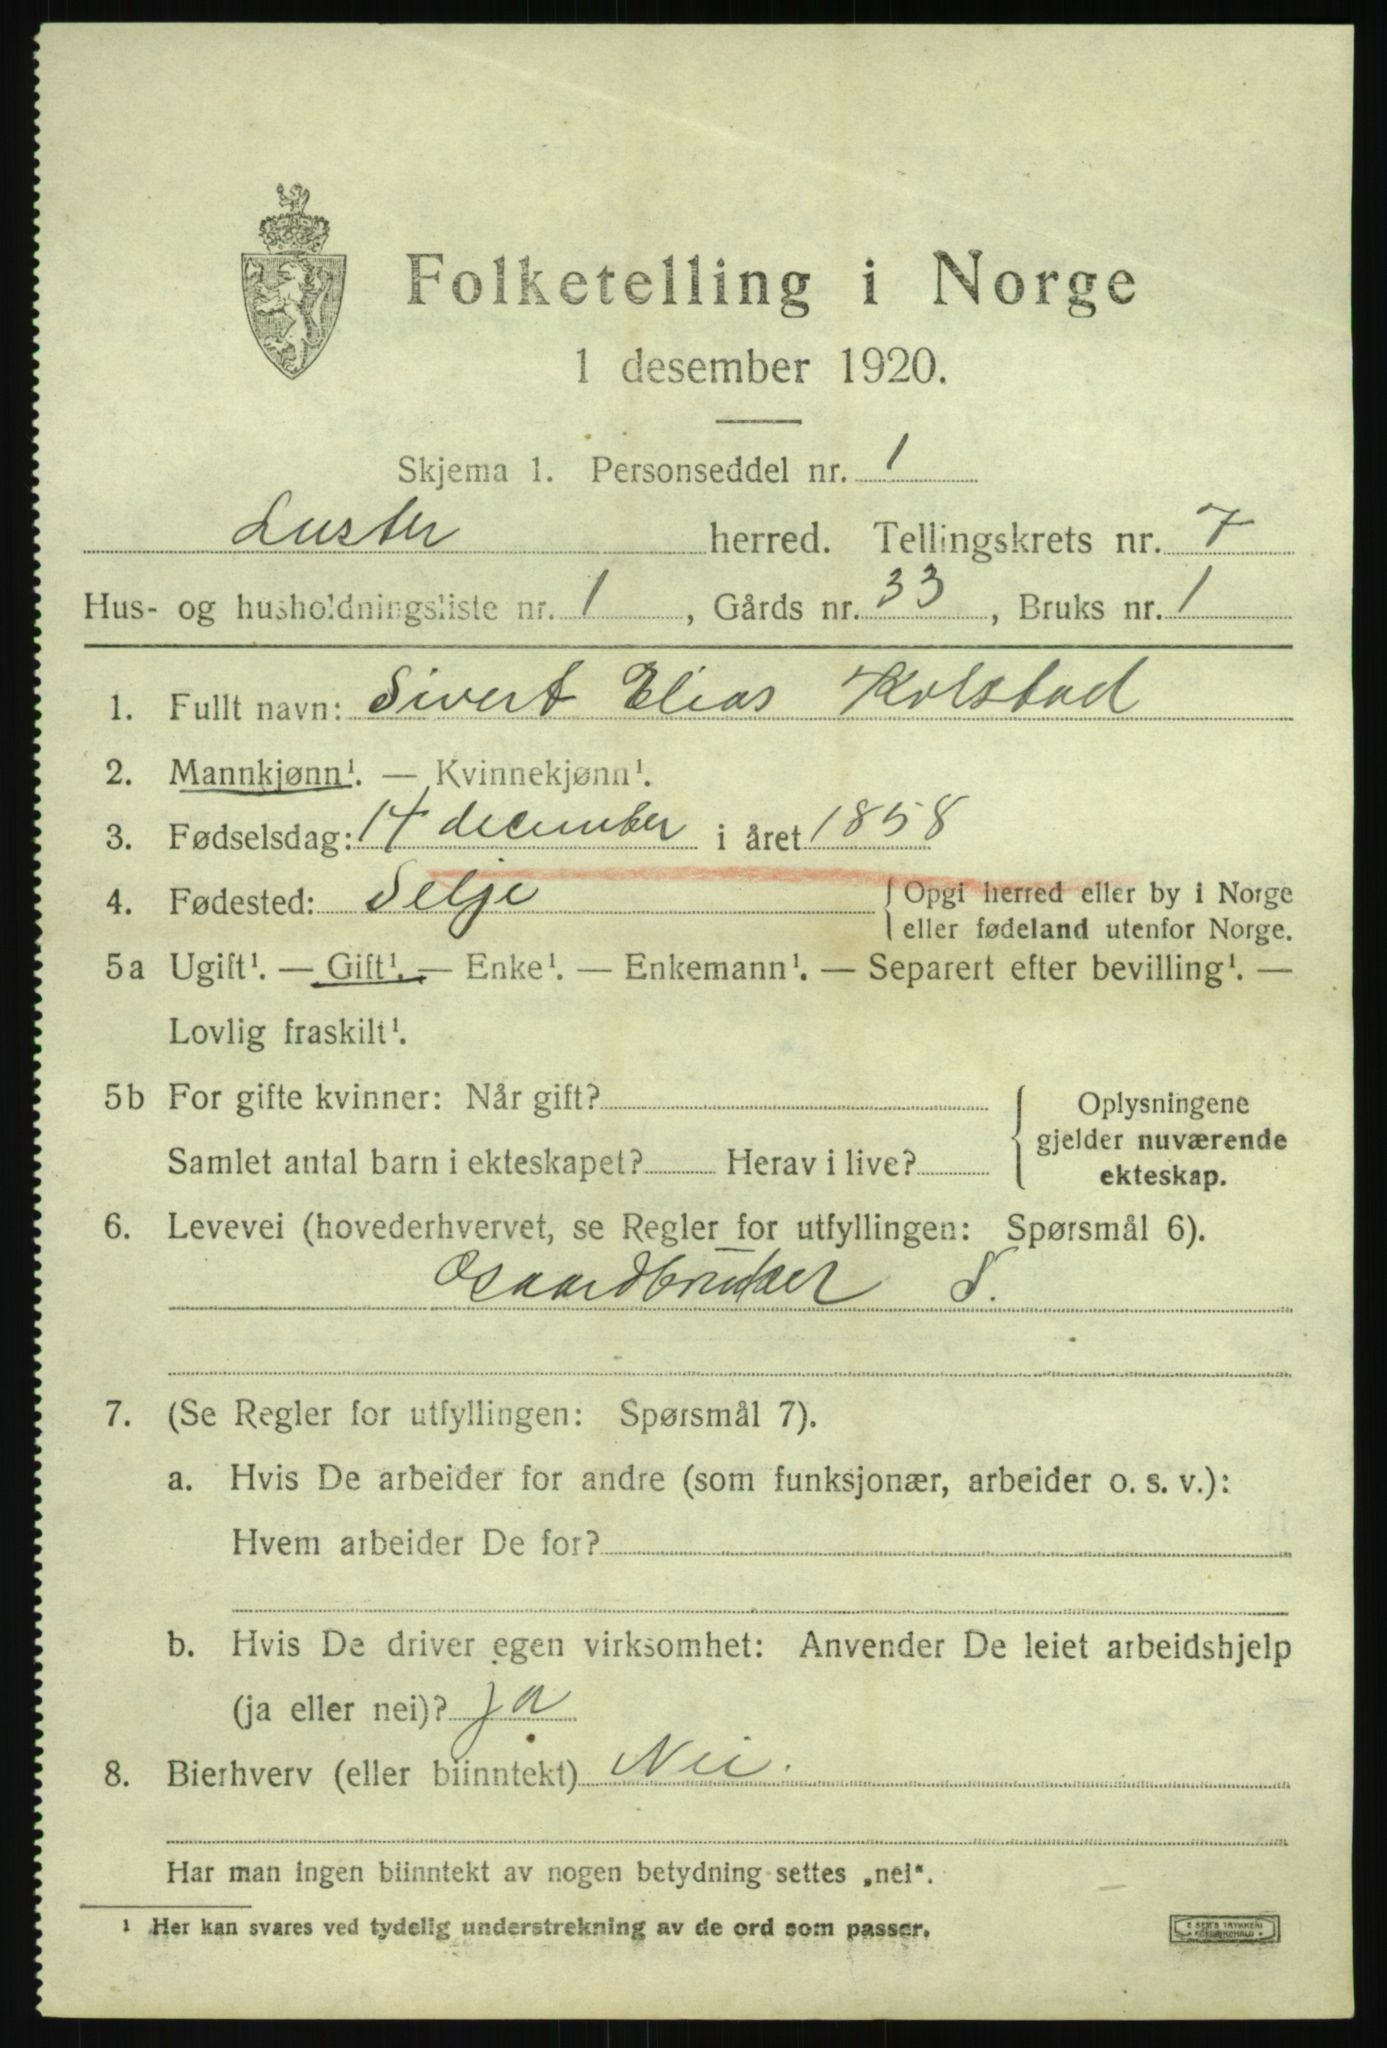 Folketelling i Norge
1 desember 1920.
Skjema 1. Personseddel nr. 1
Luster herred. Tellingskrets nr. 7
Hus- og husholdningsliste nr. 1, Gårds nr. 33, Bruks nr. 1
1. Fullt navn: Sivert Elias Kolstad
2. Mannkjønn¹. — Kvinnekjønn¹.
3. Fødselsdag: 14 december i året 1858
4. Fødested: Selje {Opgi herred eller by i Norge
eller fødeland utenfor Norge.
5a Ugift¹. — Gift¹. — Enke¹. — Enkemann¹. — Separert efter bevilling¹. —
Lovlig fraskilt¹.
5b For gifte kvinner: Når gift? { Oplysningene
gjelder nuværende
Samlet antal barn i ekteskapet? Herav i live? ekteskap.
6. Levevei (hovederhvervet, se Regler for utfyllingen: Spørsmål 6).
Gaardbruker S.
7. (Se Regler for utfyllingen: Spørsmål 7).
a. Hvis De arbeider for andre (som funksjonær, arbeider o. s. v.):
Hvem arbeider De for?
b. Hvis De driver egen virksomhet: Anvender De leiet arbeidshjelp
(ja eller nei)? ja
8. Bierhverv (eller biinntekt) Nei.
Har man ingen biinntekt av nogen betydning settes „nei“.
¹ Her kan svares ved tydelig understrekning av de ord som passer.